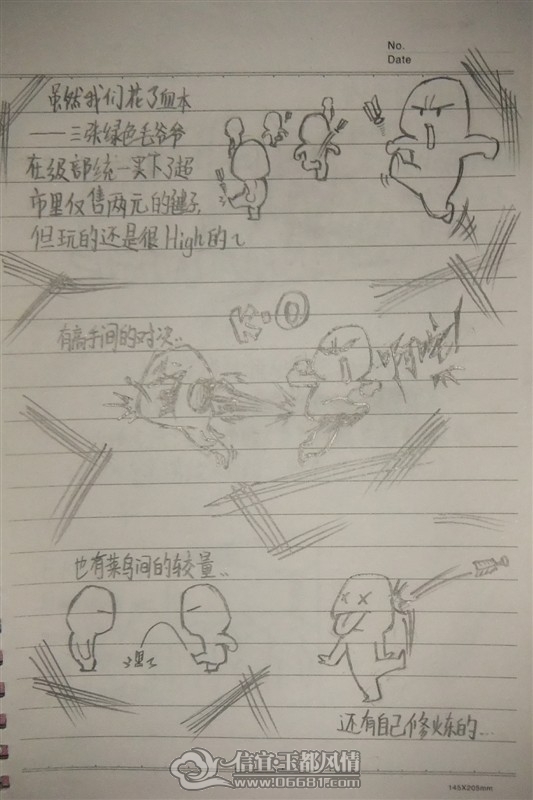 No.
Date
虽然我们花了血本
——三张绿色毛爷爷
在级部统一买下了超
市里仅售两元的毽子,
但玩的还是很High的~
有高手间的对决..
也有菜鸟间的较量..
还有自己修炼的...
信宜·玉都风情
www.06681.com
145X205mm